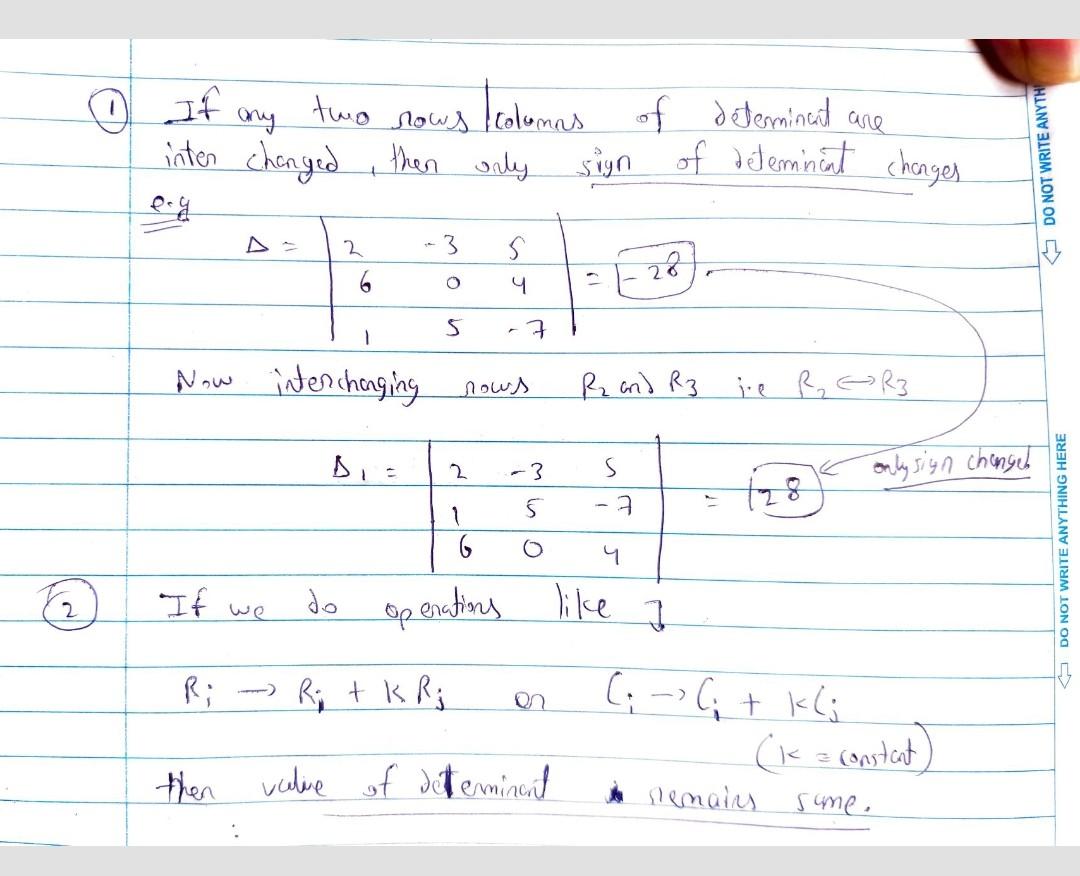 ① If any two rows/columns of determinant are
inter changed, then only sign of determinant changes
e.g
Δ = | 2 -3 5 |
| 6 0 4 | = -28
| 1 5 -7 |
Now interchanging rows R₂ and R₃ i.e R₂ ↔ R₃
Δ₁ = | 2 -3 5 |
| 1 5 -7 | = 28
| 6 0 4 |
only sign changed
② If we do operations like
Rᵢ → Rᵢ + K Rⱼ or Cᵢ → Cᵢ + KCⱼ
(K = constant)
then value of determinant remains same.
DO NOT WRITE ANYTH
DO NOT WRITE ANYTHING HERE